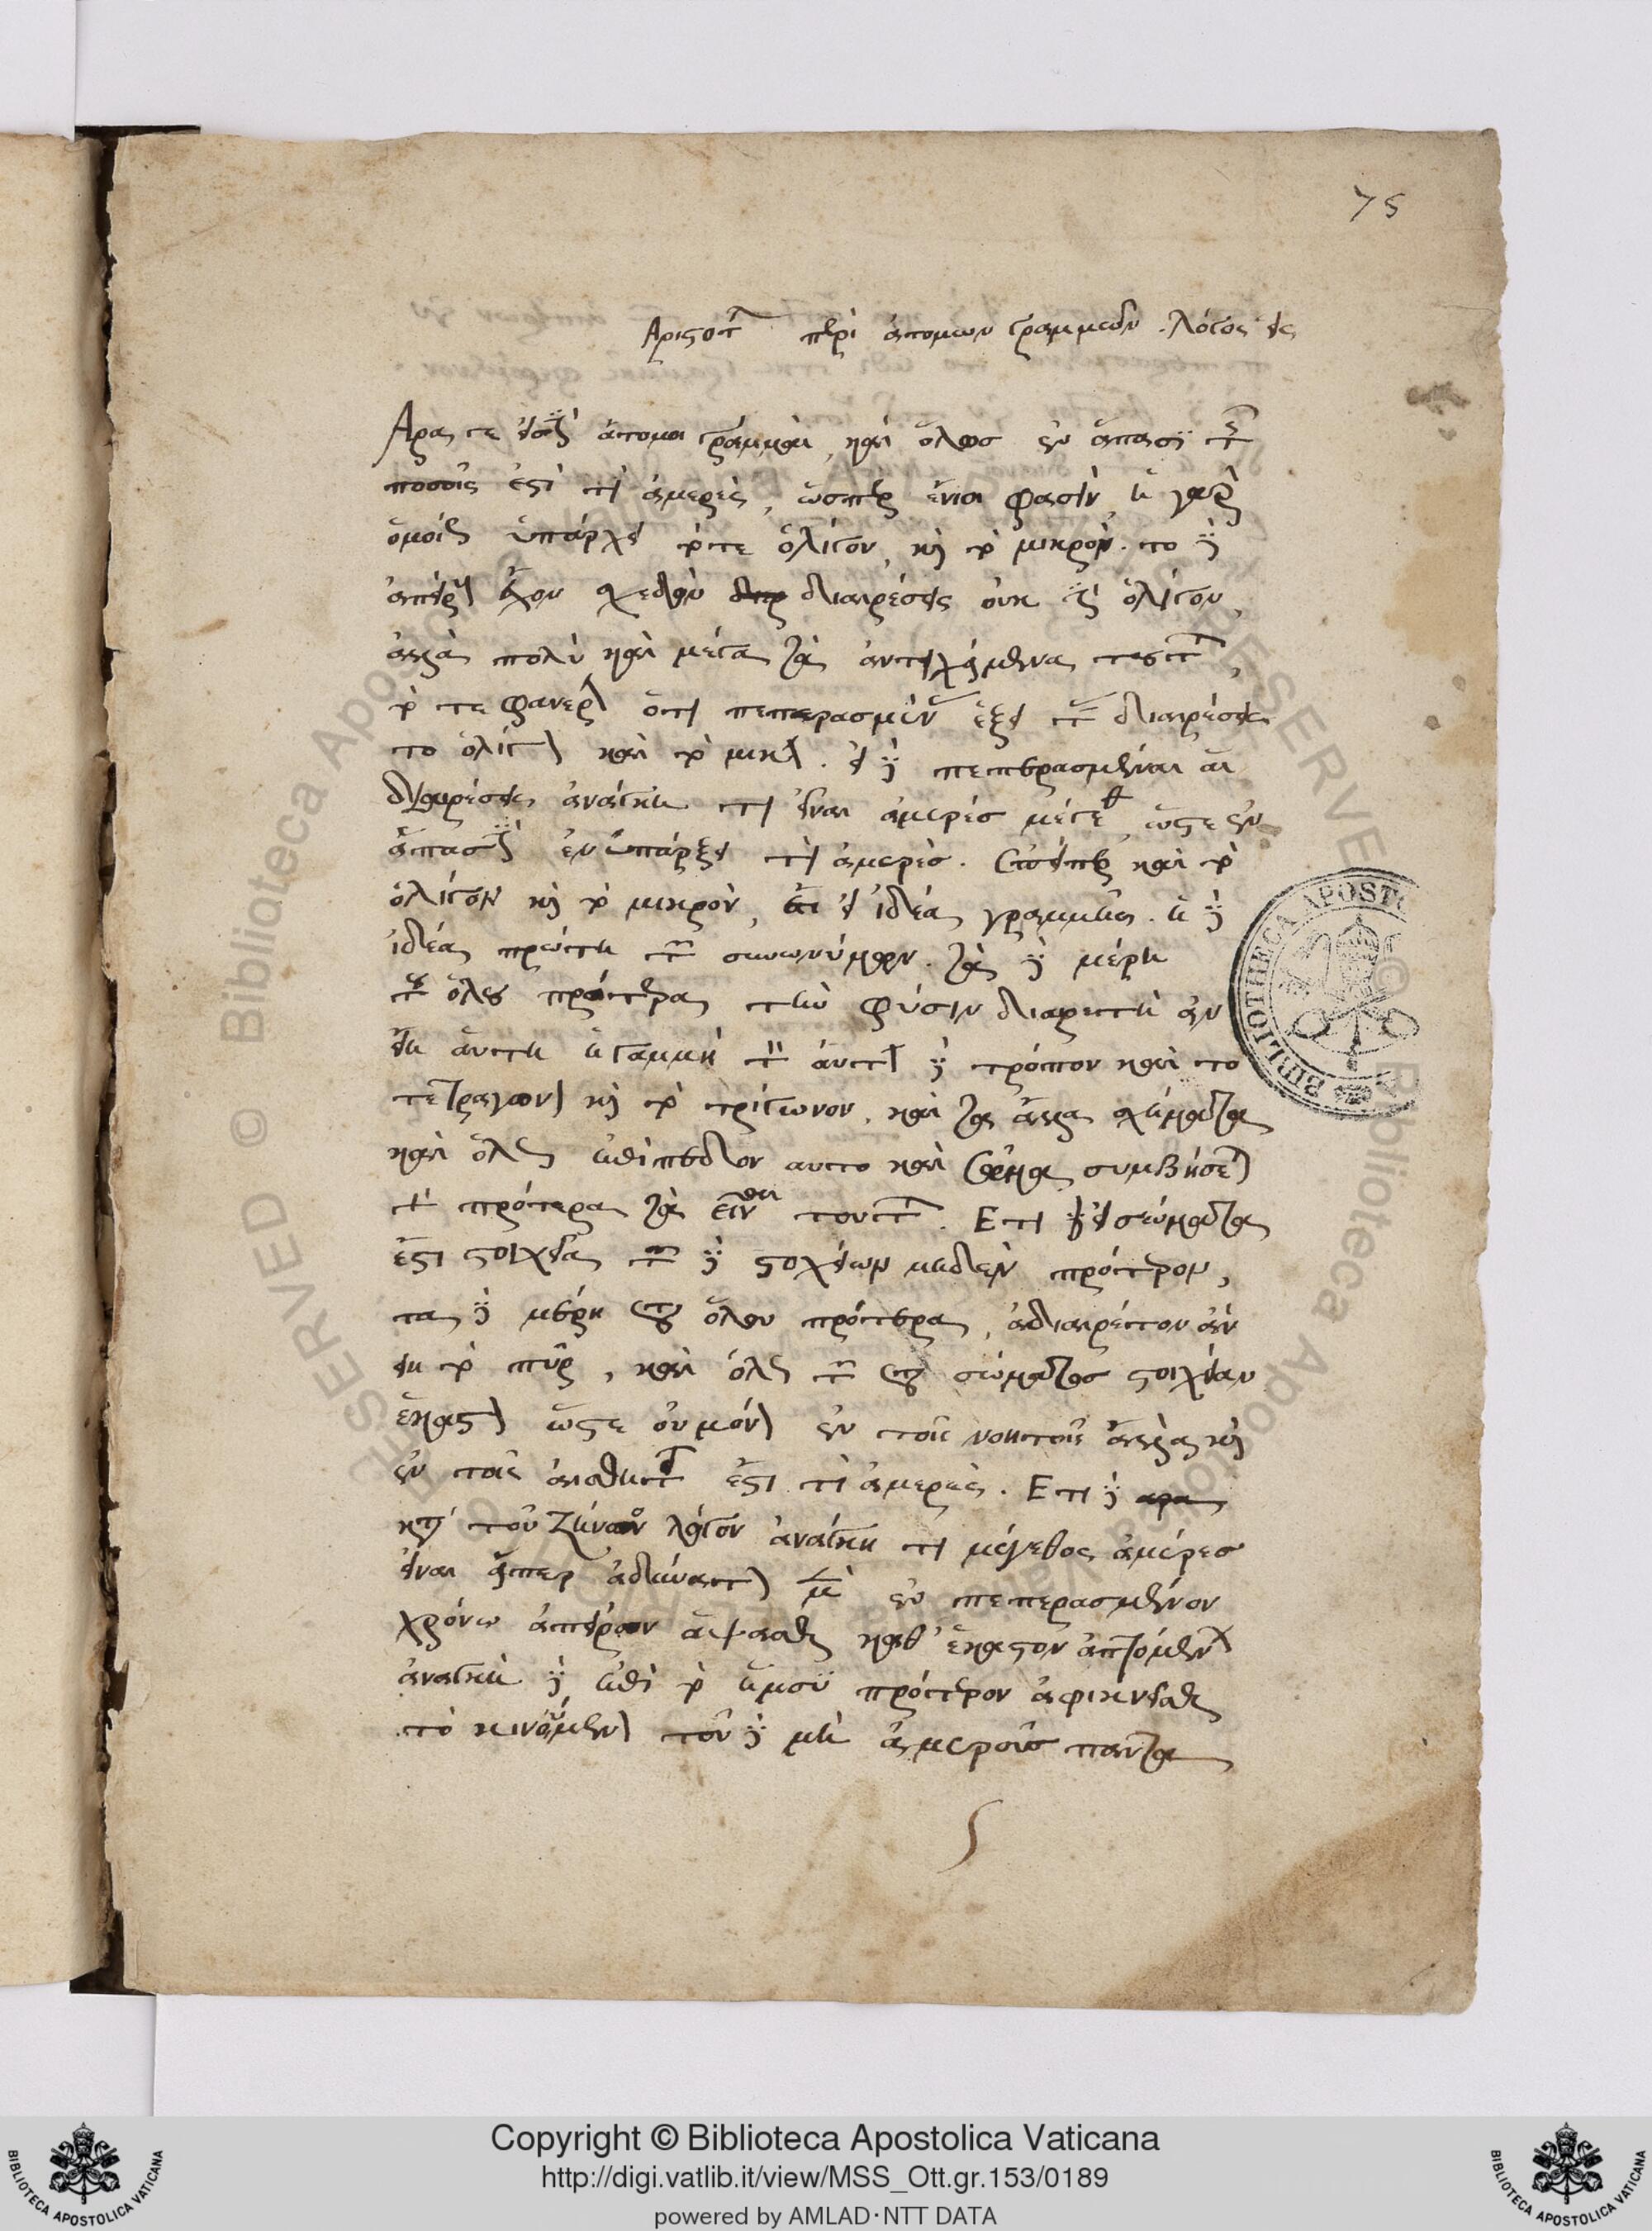 75
Αριστοτ περὶ ἀτομων γραμμῶν . λόγος εἷς
Αρα γε εἰσὶν ἄτομοι γραμμαὶ, καὶ ὅλως ἐν ἅπασι τοῖς
ποσοῖς ἐστὶ τι ἀμερὲς, ὥσπερ ἔνιοι φασὶν, ἢ γὰρ
ὁμοίως ὑπάρχει τό τε ὀλίγον, καὶ τὸ μικρὸν. το δὲ
ἀπείρους ἔχον σχεδὸν διαιρέσεις οὐκ ἔστιν ὀλίγον,
ἀλλὰ πολὺ καὶ μέγα τὰ ἀντικείμενα τούτοις,
τό τε φανερὸν ὅτι πεπερασμένας ἕξει τὰς διαιρέσεις
το ὀλίγον καὶ τὸ μικρὸν . εἰ δὲ πεπερασμέναι αἱ
διαιρέσεις ἀνάγκη τι εἶναι ἀμερὲς μέγεθος ὥστε ἐν
ἅπασιν ἐνυπάρξει τὶ ἀμερὲς . ἐπείπερ καὶ τὸ
ὀλίγον καὶ τὸ μικρὸν, ἔτι εἰ ἰδέα γραμμῆς . ἡ δὲ
ἰδέα πρώτη τῶν συνωνύμων . τὰ δὲ μέρη
τοῦ ὅλου πρότερα τὴν φύσιν διαιρετὴ ἂν
εἴη αὐτη ἡ γραμμὴ τὸν αὐτὸν δὲ τρόπον καὶ το
τετράγωνον καὶ τὸ τρίγωνον, καὶ τὰ ἄλλα σχήματα
καὶ ὅλως ἐπίπεδον αυτο καὶ σῶμα συμβήσεται
γὰρ πρότερα τὰ εἶναι τουτων . Ετι εἰ σώματος
ἐστι στοιχεῖα τῶν δὲ στοιχείων μηδὲν πρότερον,
τα δὲ μέρη τοῦ ὅλου πρότερα, ἀδιαιρέτον ἂν
εἴη τὸ πῦρ, καὶ ὅλως τῶν τοῦ σώματος στοιχείων
ἕκαστον ὥστε οὐ μόνον ἐν τοῖς νοητοῖς ἀλλὰ καὶ
ἐν τοῖς αἰσθητοῖς ἐστι τὶ ἀμερὲς . Ετι δὲ
κατὰ τοῦ Ζήνωνος λόγον ἀνάγκη τι μέγεθος ἀμερὲς
εἶναι εἴπερ ἀδύνατον μὲν ἐν πεπερασμένον
χρόνω ἀπείρων ἅψασθαι καθ' ἕκαστον ἁπτόμενον
ἀνάγκη δὲ ἐπὶ τὸ ἥμισυ πρότερον ἀφικνεῖσθαι
τὸ κινούμενον τοῦ δὲ μὴ ἀμεροῦς παντα
BIBLIOTHECA APOSTO
BIBLIO
© Biblioteca Apostolica Vaticana
RESERVED
Copyright © Biblioteca Apostolica Vaticana
http://digi.vatlib.it/view/MSS_Ott.gr.153/0189
powered by AMLAD·NTT DATA
BIBLIOTECA APOSTOLICA VATICANA
BIBLIOTECA APOSTOLICA VATICANA